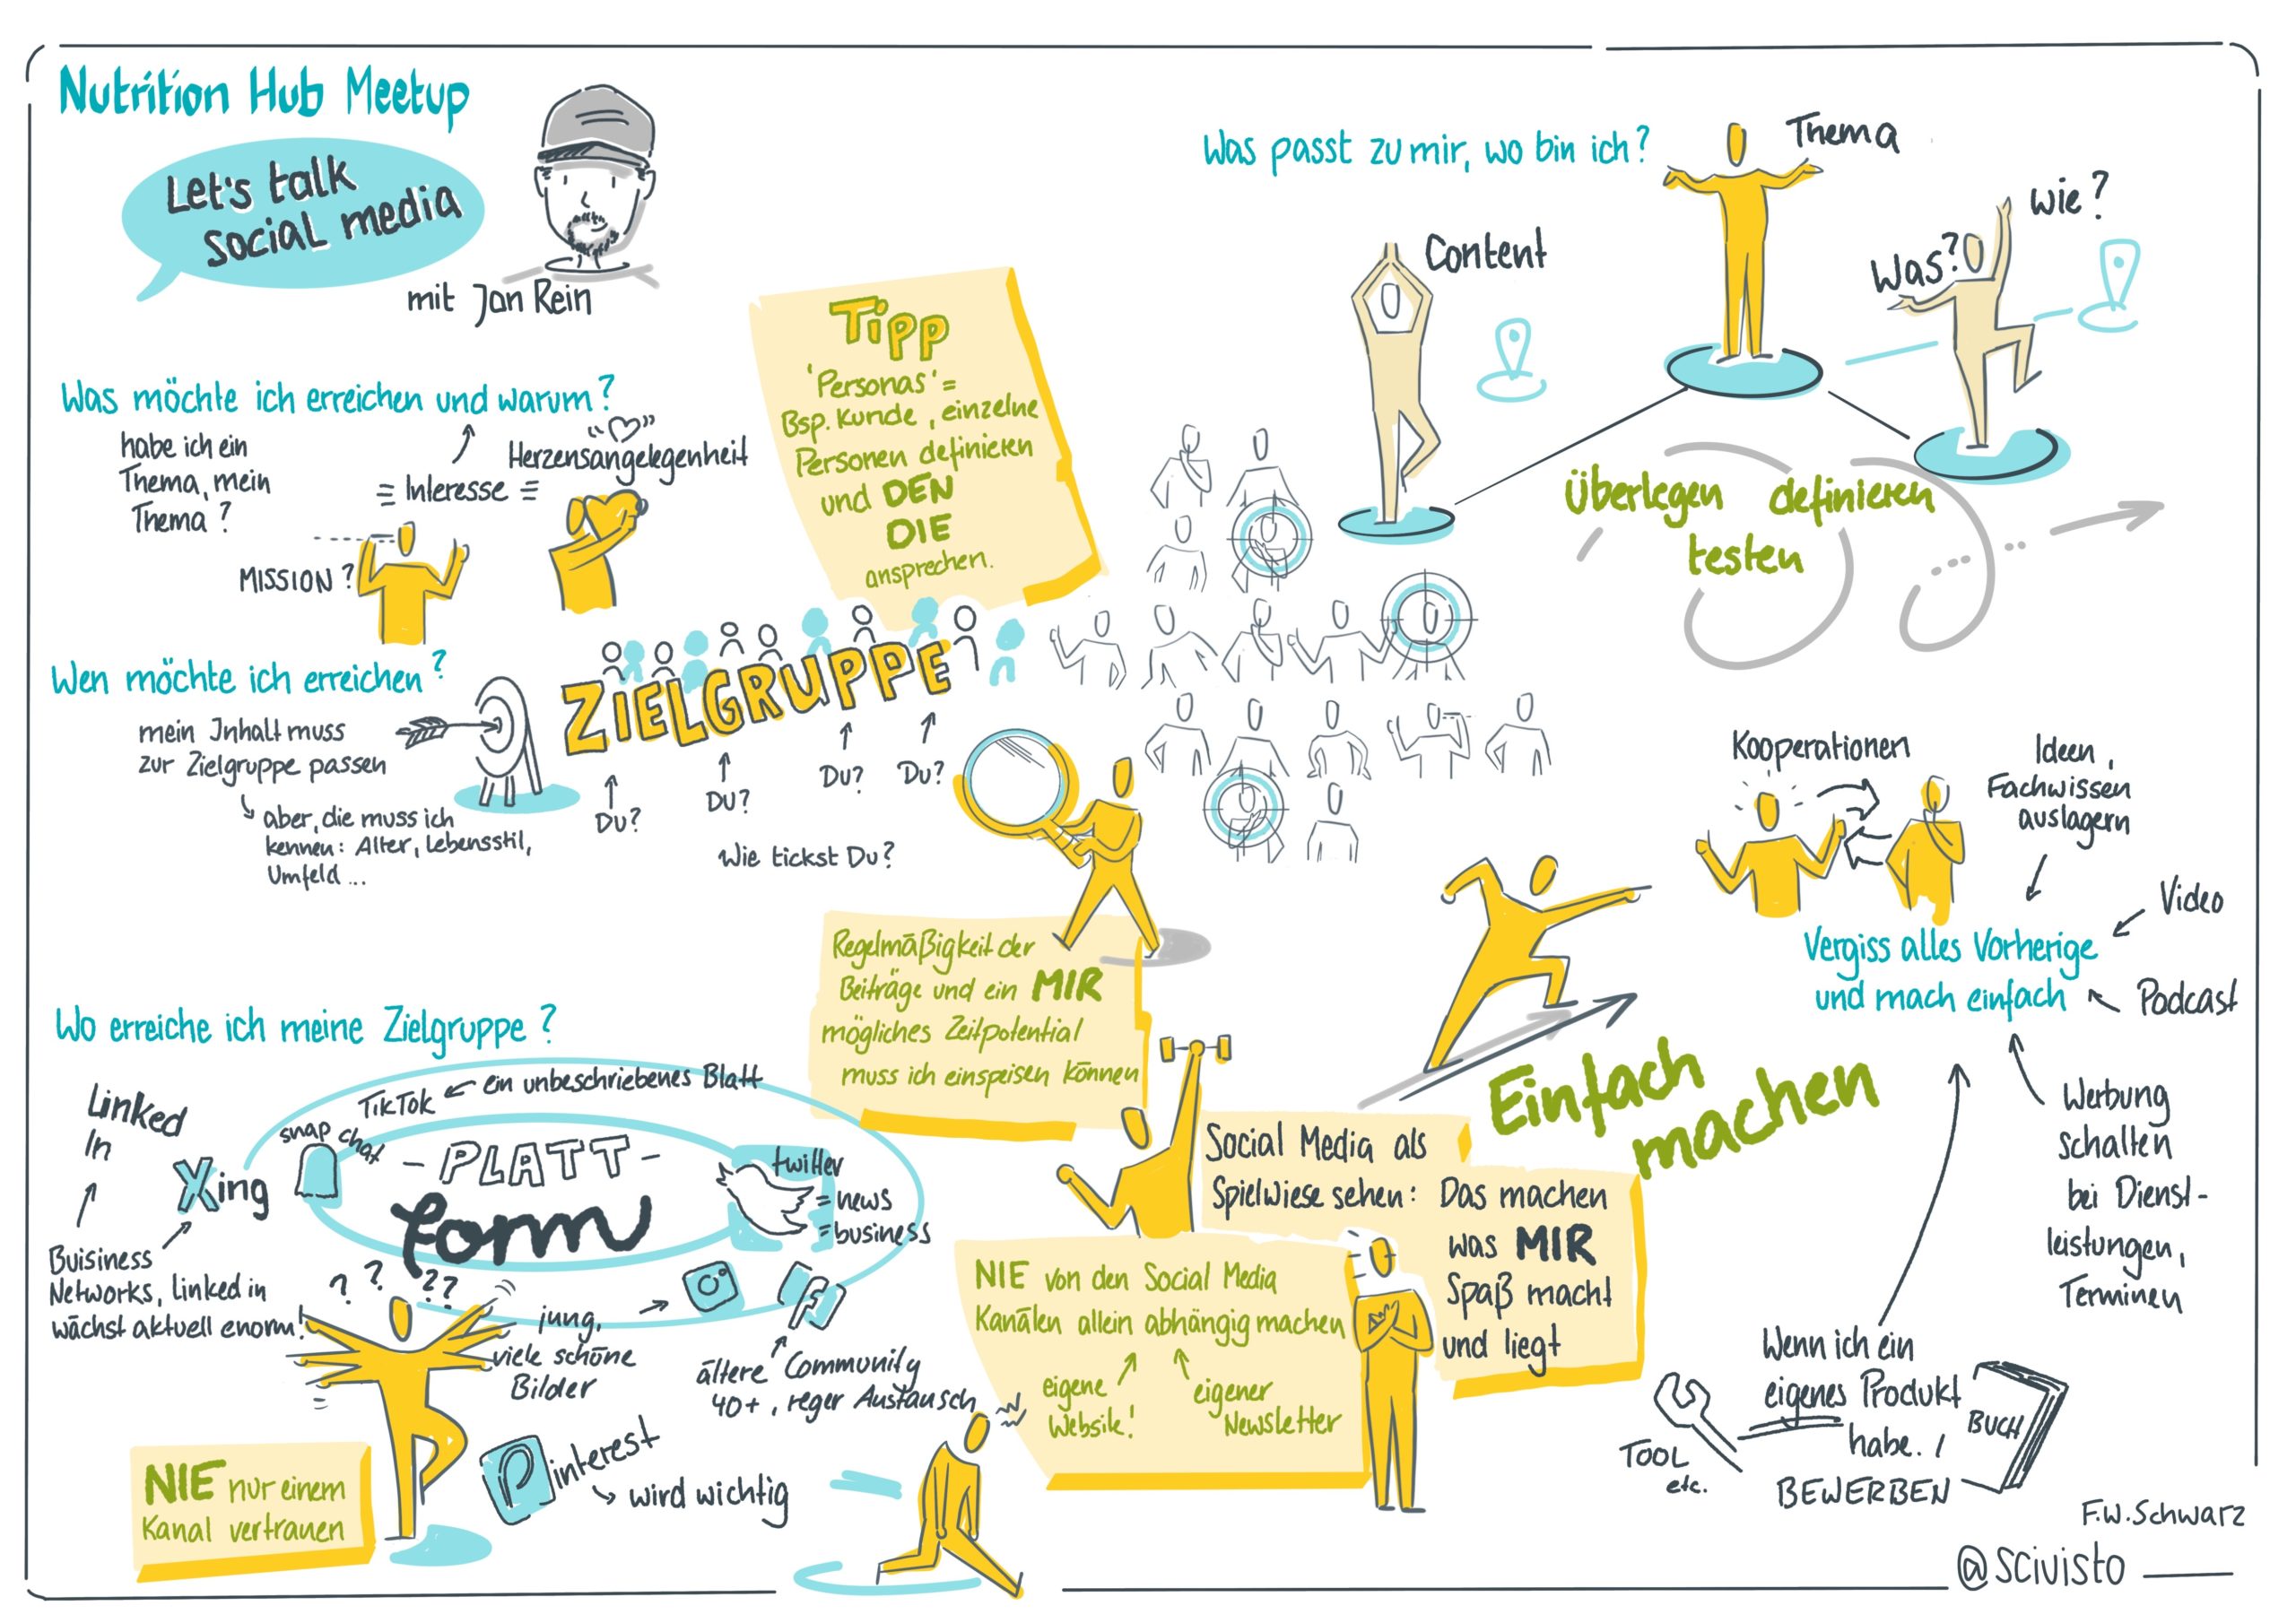 Nutrition Hub Meetup
Let's talk
social media
mit Jan Rein
Was möchte ich erreichen und warum?
habe ich ein
Thema, mein
Thema?
= Interesse =
"♡"
Herzensangelegenheit
MISSION?
Tipp
'Personas' =
Bsp. Kunde, einzelne
Personen definieren
und DEN
DIE
ansprechen.
Wen möchte ich erreichen?
mein Inhalt muss
zur Zielgruppe passen
aber, die muss ich
kennen: Alter, Lebensstil,
Umfeld ...
ZIELGRUPPE
Du?
Du?
Du?
Du?
Wie tickst Du?
Was passt zu mir, wo bin ich?
Thema
Content
Was?
Wie?
Überlegen definieren
testen
Kooperationen
Ideen,
Fachwissen
auslagern
Video
Vergiss alles Vorherige
und mach einfach
Podcast
Werbung
schalten
bei Dienst-
leistungen,
Terminen
Wenn ich ein
eigenes Produkt
habe. !
BEWERBEN
TOOL
etc.
BUCH
Regelmäßigkeit der
Beiträge und ein MIR
mögliches Zeitpotential
muss ich einspeisen können
Einfach
machen
Social Media als
Spielwiese sehen: Das machen
was MIR
Spaß macht
und liegt
NIE von den Social Media
Kanälen allein abhängig machen
eigene
Website!
eigener
Newsletter
Wo erreiche ich meine Zielgruppe?
Linked
In
Xing
Buisiness
Networks, linked in
wächst aktuell enorm!
snap chat
TikTok ← ein unbeschriebenes Blatt
- PLATT -
form
twitter
= news
= business
? ? ??
jung,
viele schöne
Bilder
f
ältere Community
40+, reger Austausch
Pinterest
wird wichtig
NIE nur einem
Kanal vertrauen
F.W.Schwarz
@scivisto